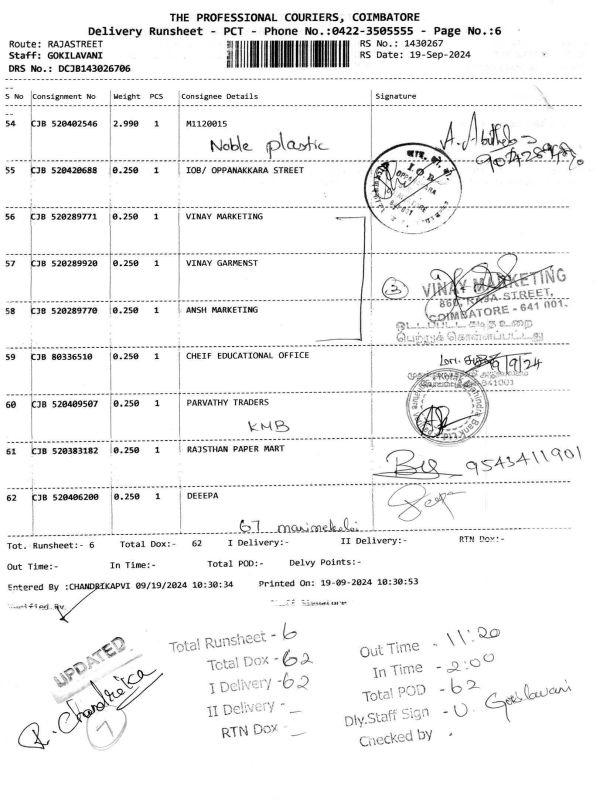 THE PROFESSIONAL COURIERS, COIMBATORE
Delivery Runsheet - PCT - Phone No.:0422-3505555 - Page No.:6
Route: RAJASTREET RS No.: 1430267
Staff: GOKILAVANI RS Date: 19-Sep-2024
DRS No.: DCJB143026706
S No Consignment No Weight PCS Consignee Details Signature
54 CJB 520402546 2.990 1 M1120015
Noble plastic
55 CJB 520420688 0.250 1 IOB/ OPPANAKKARA STREET
I O B
56 CJB 520289771 0.250 1 VINAY MARKETING
57 CJB 520289920 0.250 1 VINAY GARMENST
3 VINAY MARKETING
860, RAJA STREET,
COIMBATORE - 641 001.
58 CJB 520289770 0.250 1 ANSH MARKETING
59 CJB 80336510 0.250 1 CHEIF EDUCATIONAL OFFICE
9/9/24
60 CJB 520409507 0.250 1 PARVATHY TRADERS
KMB
61 CJB 520383182 0.250 1 RAJSTHAN PAPER MART
9543411901
62 CJB 520406200 0.250 1 DEEEPA
Deepa
67
Tot. Runsheet:- 6 Total Dox:- 62 I Delivery:- II Delivery:- RTN Dox:-
Out Time:- In Time:- Total POD:- Delvy Points:-
Entered By :CHANDRIKAPVI 09/19/2024 10:30:34 Printed On: 19-09-2024 10:30:53
UPDATED
R. Chandrica
7
Total Runsheet - 6
Total Dox - 62
I Delivery - 62
II Delivery - _
RTN Dox - _
Out Time - 11:20
In Time - 2:00
Total POD - 62
Dly.Staff Sign - U. Gokilavani
Checked by -